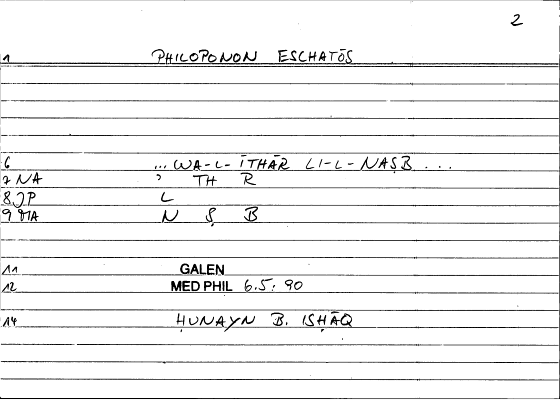 2
1 PHILOPONON ESCHATŌS
6 ... WA-L-ĪTHĀR LI-L-NAṢB ...
7 NA ʾ TH R
8 JP L
9 MA N Ṣ B
11 GALEN
12 MED PHIL 6.5; 90
14 ḤUNAYN B. ISḤĀQ